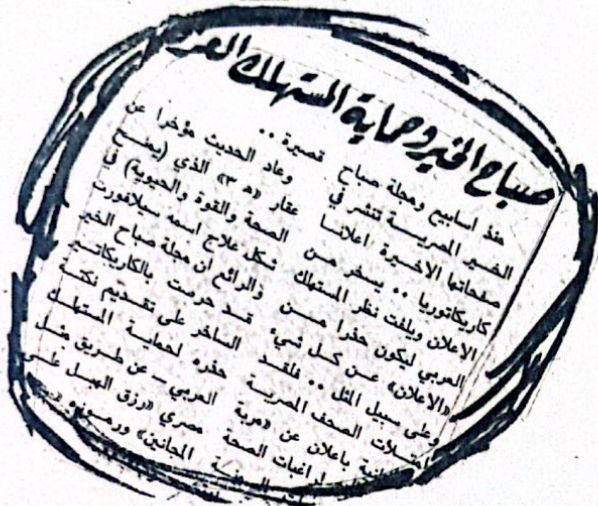 صباح الخير وحماية المستهلك العر
منذ اسابيع ومجلة صباح
الخير المصرية تنشر في
صفحاتها الاخيرة اعلانا
كاريكاتوريا .. يسخر من
الاعلان ويلفت نظر المستهلك
العربي ليكون حذرا من
«الاعلان» عن كل شيء
وعلى سبيل المثل .. فلقد
امتلات الصحف المصرية
باعلان عن «مربة
لراغبات الصحة
قصيرة ..
وعاد الحديث مؤخرا عن
عقار «هـ ٣» الذي (يمنح
الصحة والقوة والحيوية) في
شكل علاج اسمه سيلافورت
والرائع ان مجلة صباح الخير
قد حرصت بالكاريكاتير
الساخر على تقديم نكتة
حذره لحماية المستهلك
العربي ـ عن طريق مثل
مصري «رزق الهبل على
المجانين» ورسوم